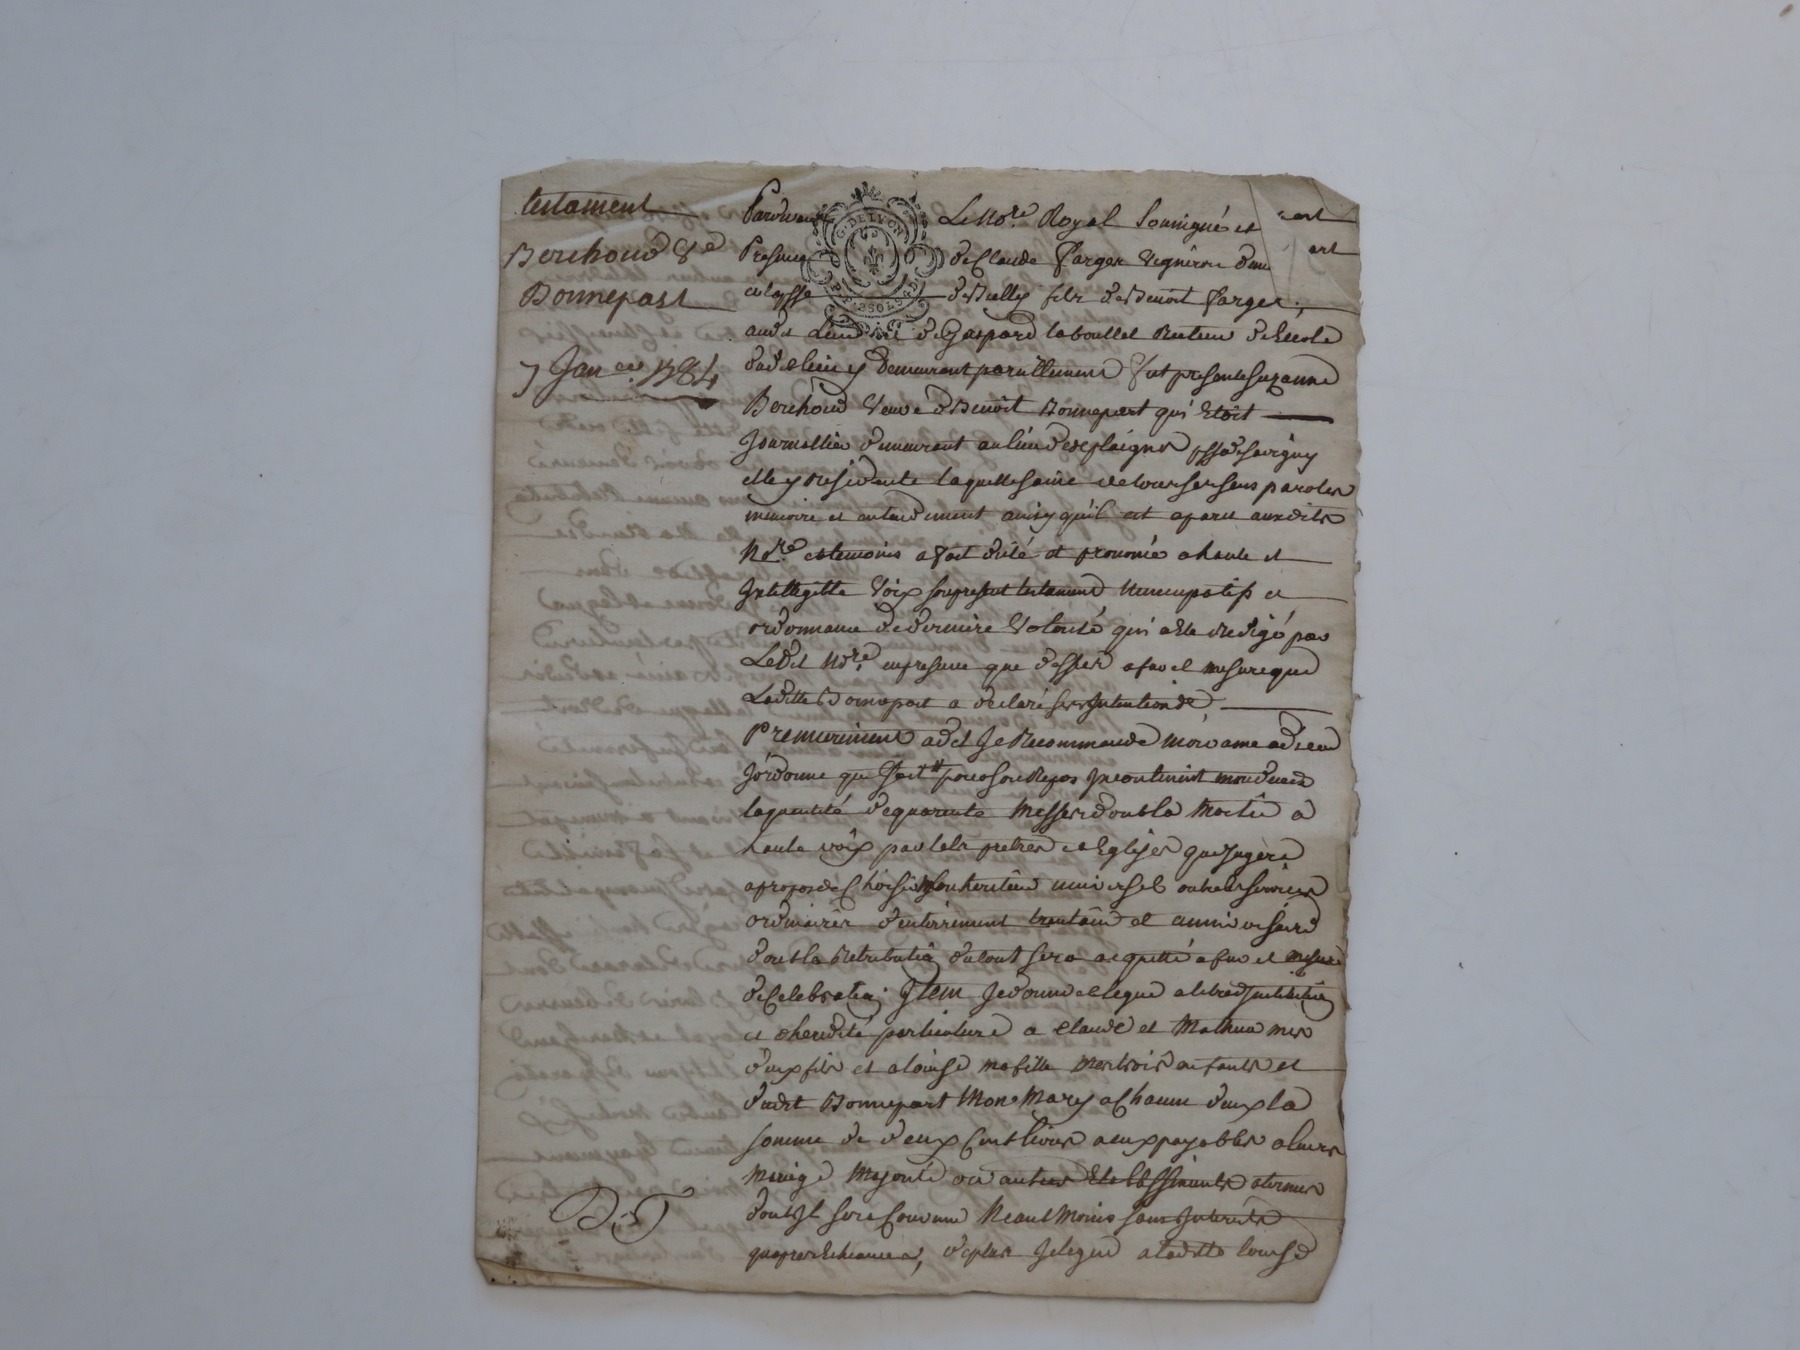 testament
Berchoud Ve
Bonnepart
7 Janer 1784
G. DE LYON
Pardevant Le Nore. Royal Soussigné et
Presence de Claude farges Vigneron dem
de Bully fils de Benoit farges,
audit Lieu et de Gaspard laboullet Recteur de Ecole
dudit lieu y Demeurant pareillement fut presente suzanne
Berchoud Veuve de Benoît Bonnepart qui Etoit
Journallier demeurant au lieu des plaignes psse de savigny
elle y residente laquelle saine de tous ses sens paroles
memoire et entendement ainsy qu'il est aparu auxdits
Nore. et temoins a fait dicté et prononcé a haute et
Intelligible Voix son present testament Nuncupatif et
ordonnance de derniere Volonté qui a Eté Redigé par
Ledit Nore. en presence que dessus a fur et mesure que
Laditte Bonnepart a declaré ses Intentions
Premierement a dit Je Recommande mon ame a dieu
J'ordonne qu'Il soit pour son Repos Incontinent mon deces
la quantité de quarente Messes dont la Moitié a
haute voix par tels pretres et Eglises que Jugera
apropos de Choisir Mon heritier universel outre les services
ordinaires d'enterrement trentain et anniversaire
dont la Retribution du tout sera acquitté a fur et mesure
de Celebration. Item Je donne et legue a titre d'Institution
et d'heredité particuliere a Claude et Mathieu mes
deux fils et a louise ma fille mes trois enfants et
dudit Bonnepart Mon Mary a Chacun d'eux la
somme de deux Cent livres a eux payables a leurs
Mariage Majorité ou autres Etablissements a termes
dont Il sera Convenu Neantmoins sans Interets
qu'apres Echeances, de plus Je legue a laditte louise